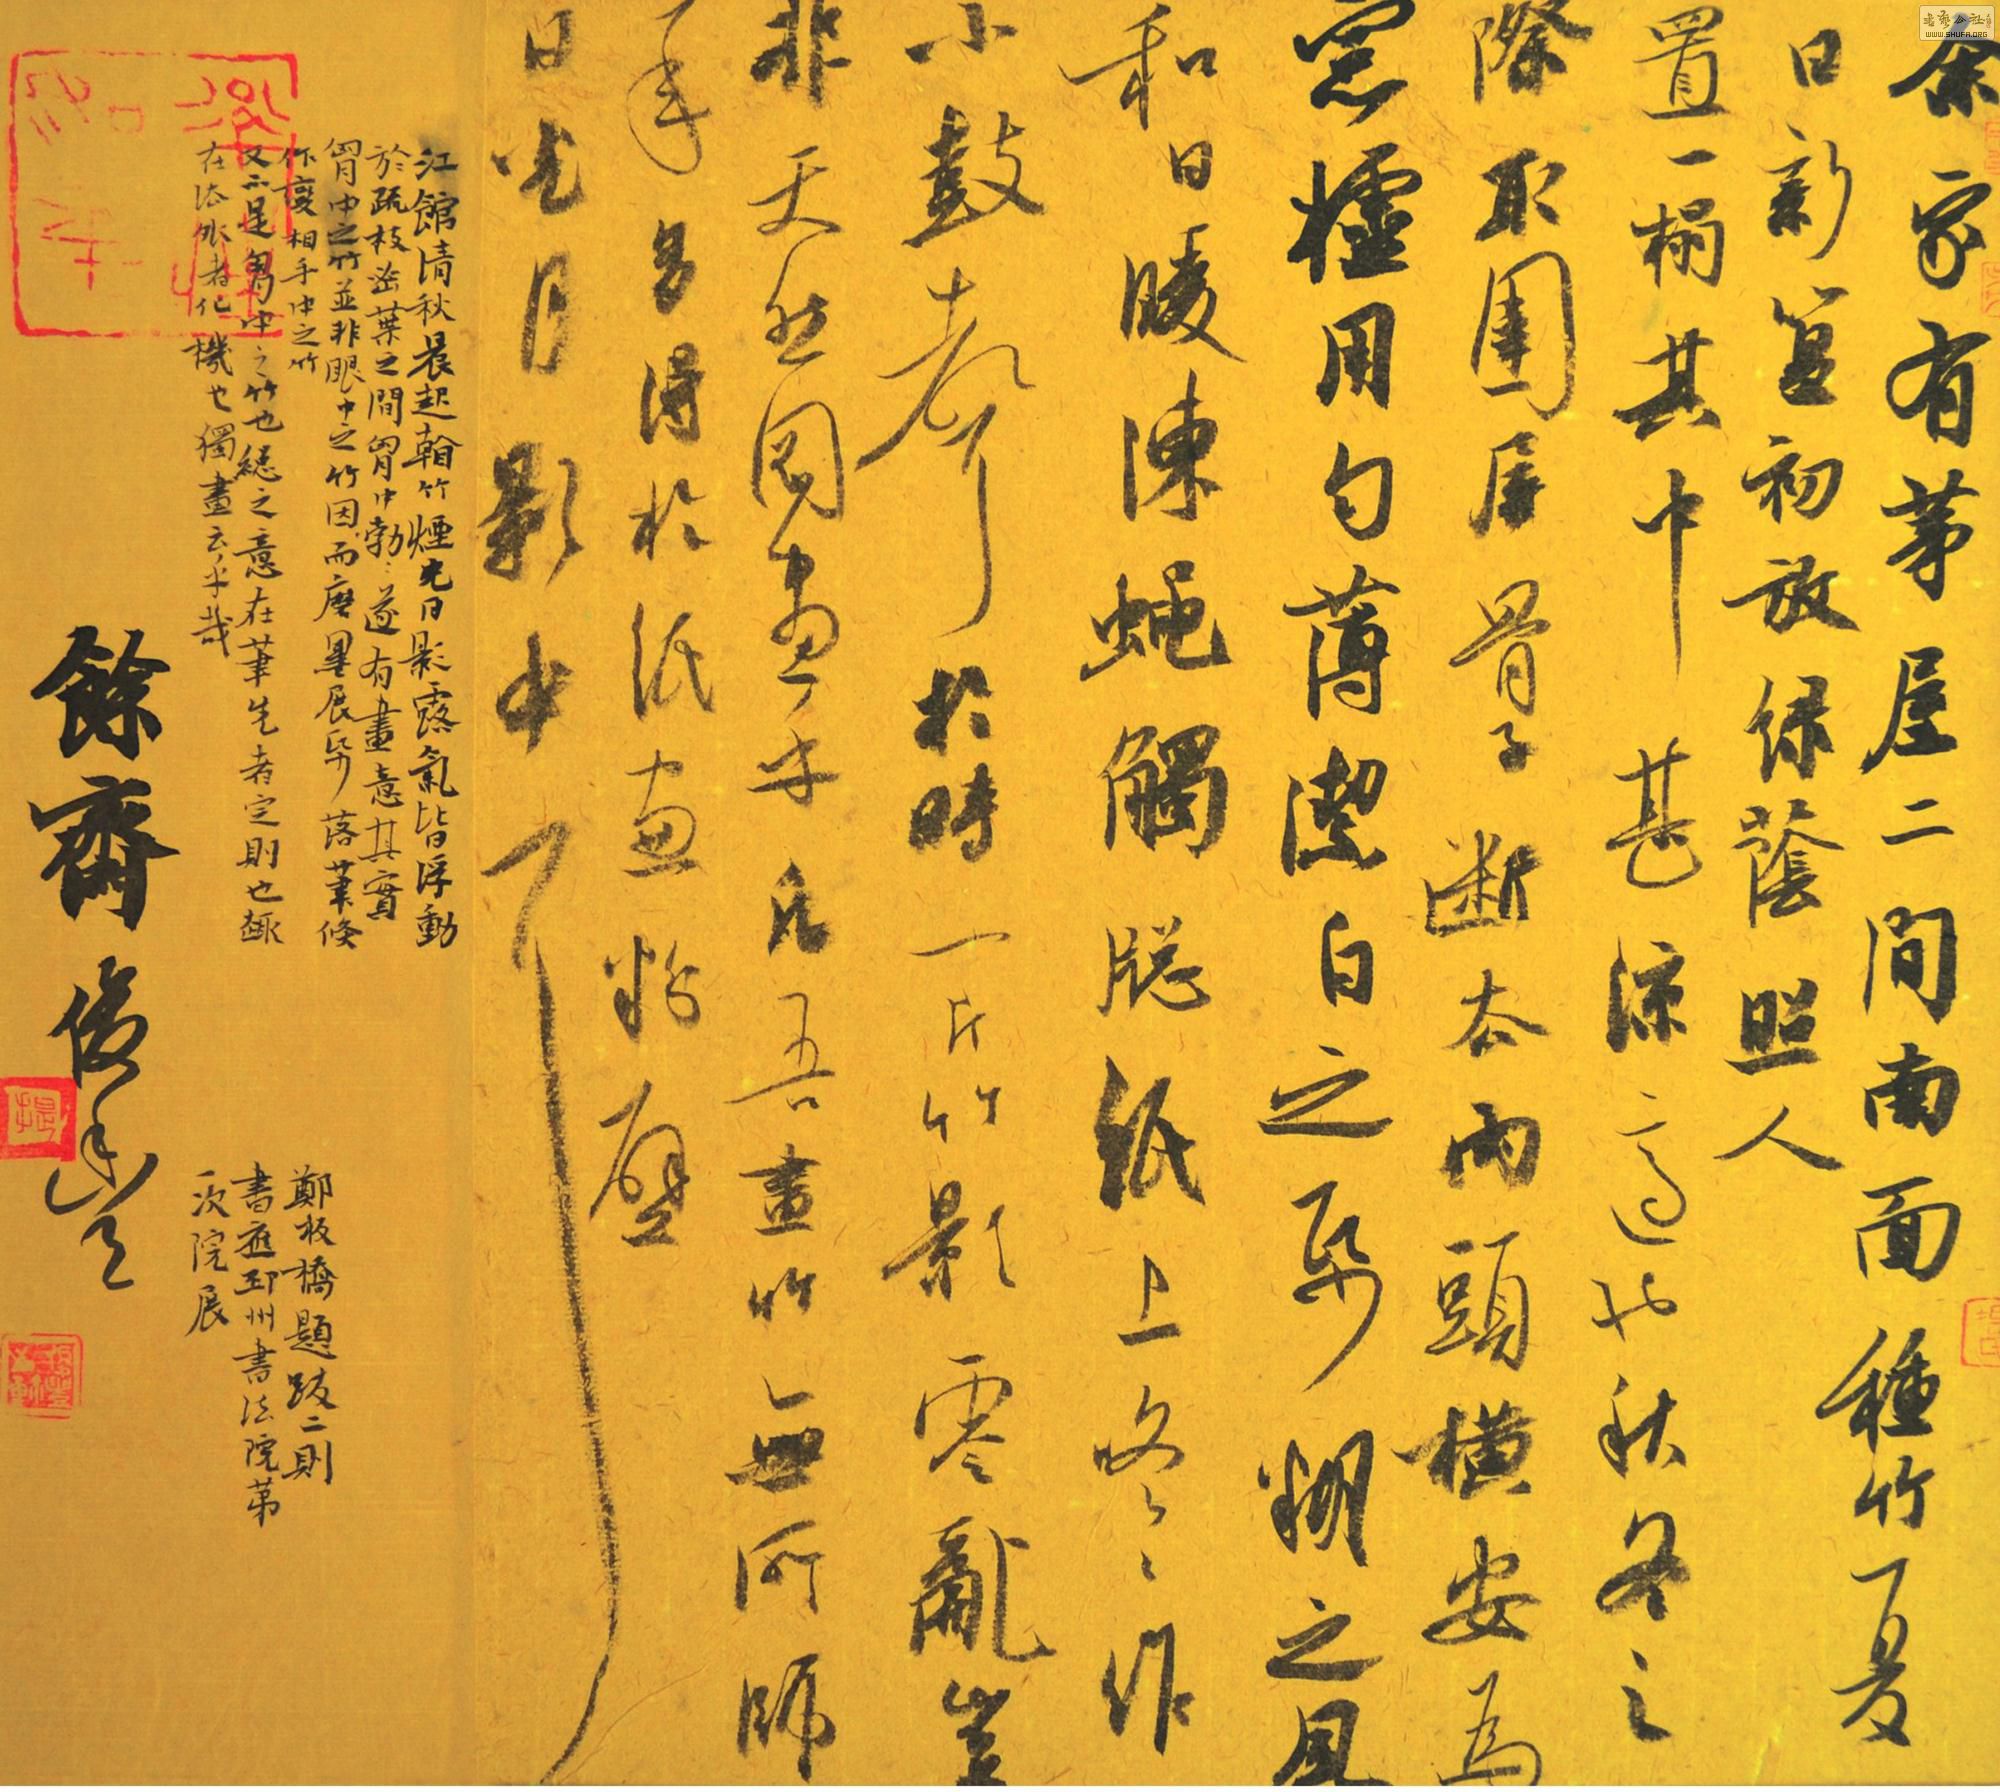 余家有茅屋二間南面種竹夏
日新篁初放绿蔭照人
置一榻其中甚凉適也秋冬之
際取圍屏骨子断去兩頭横安為
窓櫺用勻薄潔白之紙糊之風
和日暖凍蝇觸窓紙上咚咚作
小鼓聲於時一片竹影零亂豈
非天然圖畫乎凡吾畫竹無所師
承多得於纸窗粉壁
日光月影中耳
江館清秋晨起看竹煙光日影露氣皆浮動
於疏枝密葉之間胷中勃〻遂有畫意其實
胷中之竹並非眼中之竹因而磨墨展紙落筆倏
作變相手中之竹
又不是胷中之竹也總之意在筆先者定則也趣
在法外者化機也獨畫云乎哉
鄭板橋題跋二則
書進邳州書法院第
一次院展
餘齋
書藝公社
WWW.SHUFA.ORG